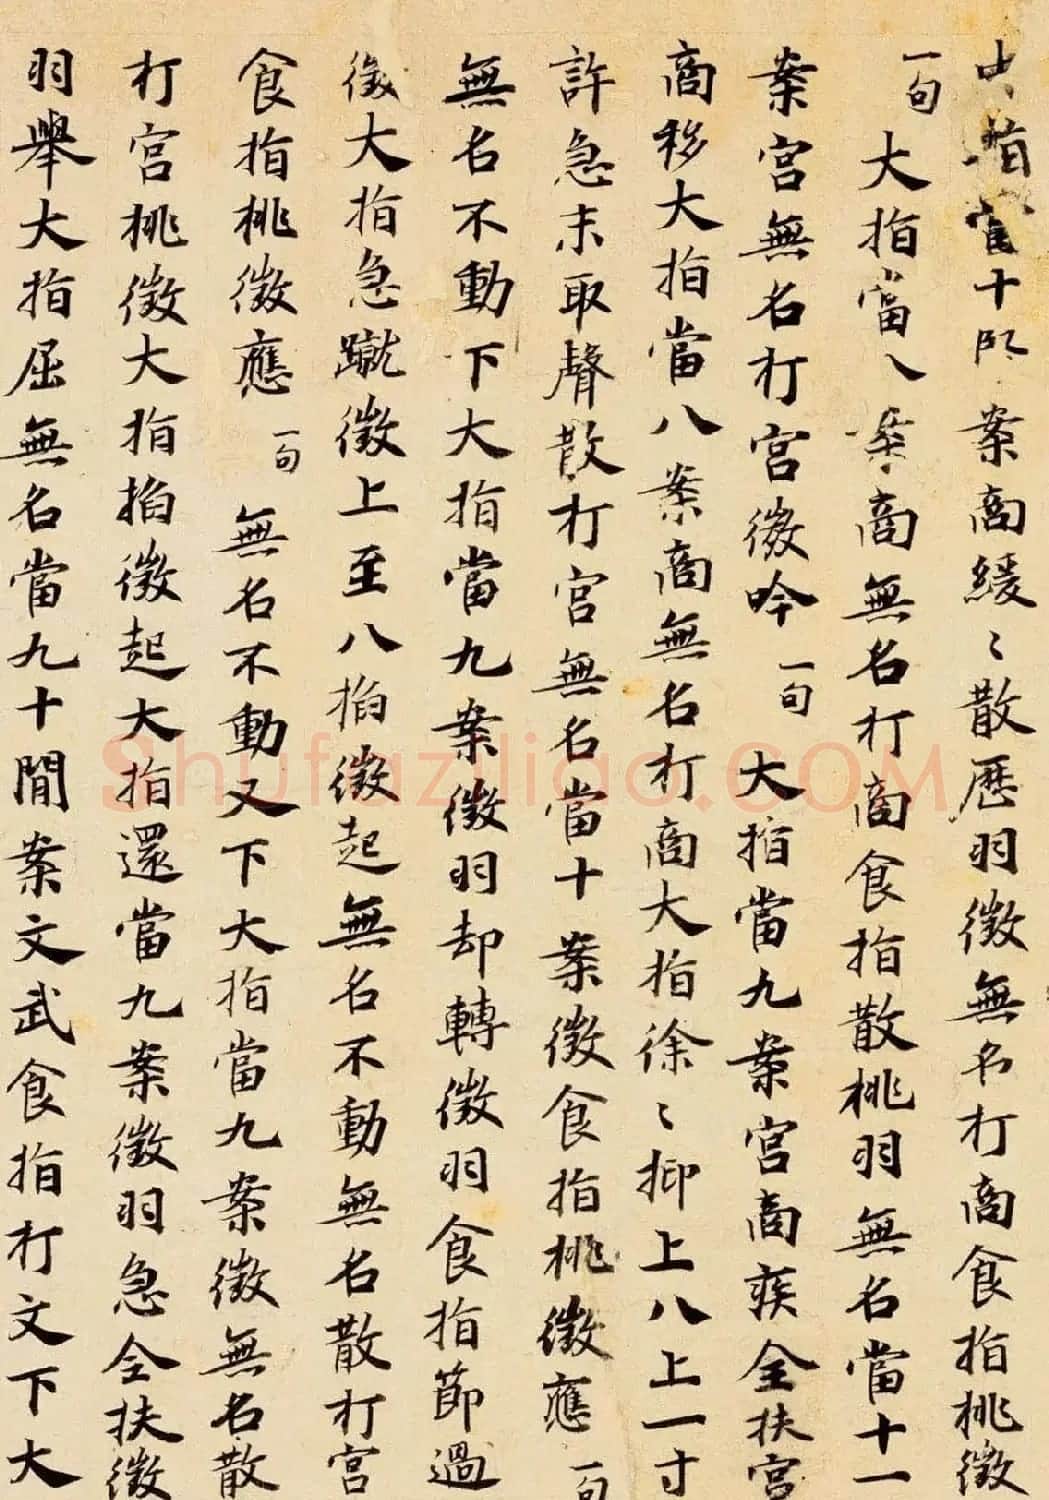 指當十案商緩〻散歷羽徵無名打商食指桃徵
一句大指當八案商無名打商食指散桃羽無名當十一
案宮無名打宮徵吟一句大指當九案宮商疾全扶宮
商移大指當八案商無名打商大指徐〻抑上八上一寸
許急末取聲散打宮無名當十案徵食指桃徵應一句
無名不動下大指當九案徵羽却轉徵羽食指節過
徵大指急蹴徵上至八掐徵起無名不動無名散打宮
食指桃徵應一句無名不動又下大指當九案徵無名散
打宮桃徵大指掐徵起大指還當九案徵羽急全扶徵
羽舉大指屈無名當九十閒案文武食指打文下大
Shufaziliao.COM